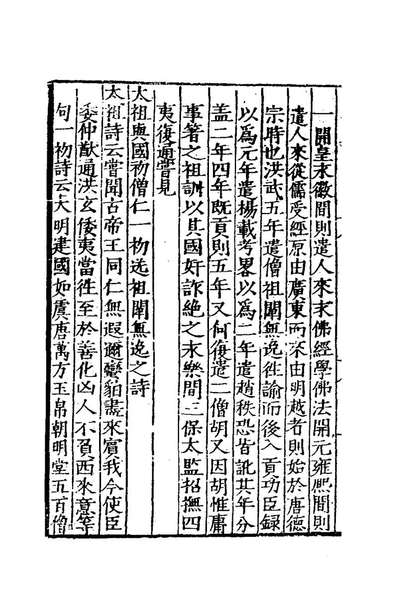 一開皇永徽間則遣人來求佛經學佛法開元雍熙間則
遣人來從儒受經原由廣東而不由明越者則始於唐德
宗時也洪武五年遣僧祖闡無逸徃諭而後入貢功臣録
以為元年遣楊載考畧以為二年遣趙秩恐皆訛其年分
盖二年四年既貢則五年又何復遣二僧胡又因胡惟庸
事著之祖訓以其國奸詐絶之永樂間三保太監招撫四
夷復通嘗見
太祖與國初僧仁一物送祖闡無逸之詩
太祖詩云嘗聞古帝王同仁無遐邇蠻貊盡來賓我今使臣
委仲猷通洪玄倭夷當徃至於善化凶人不負西來意等
句一物詩云大明建國如虞唐萬方玉帛朝明堂五百僧